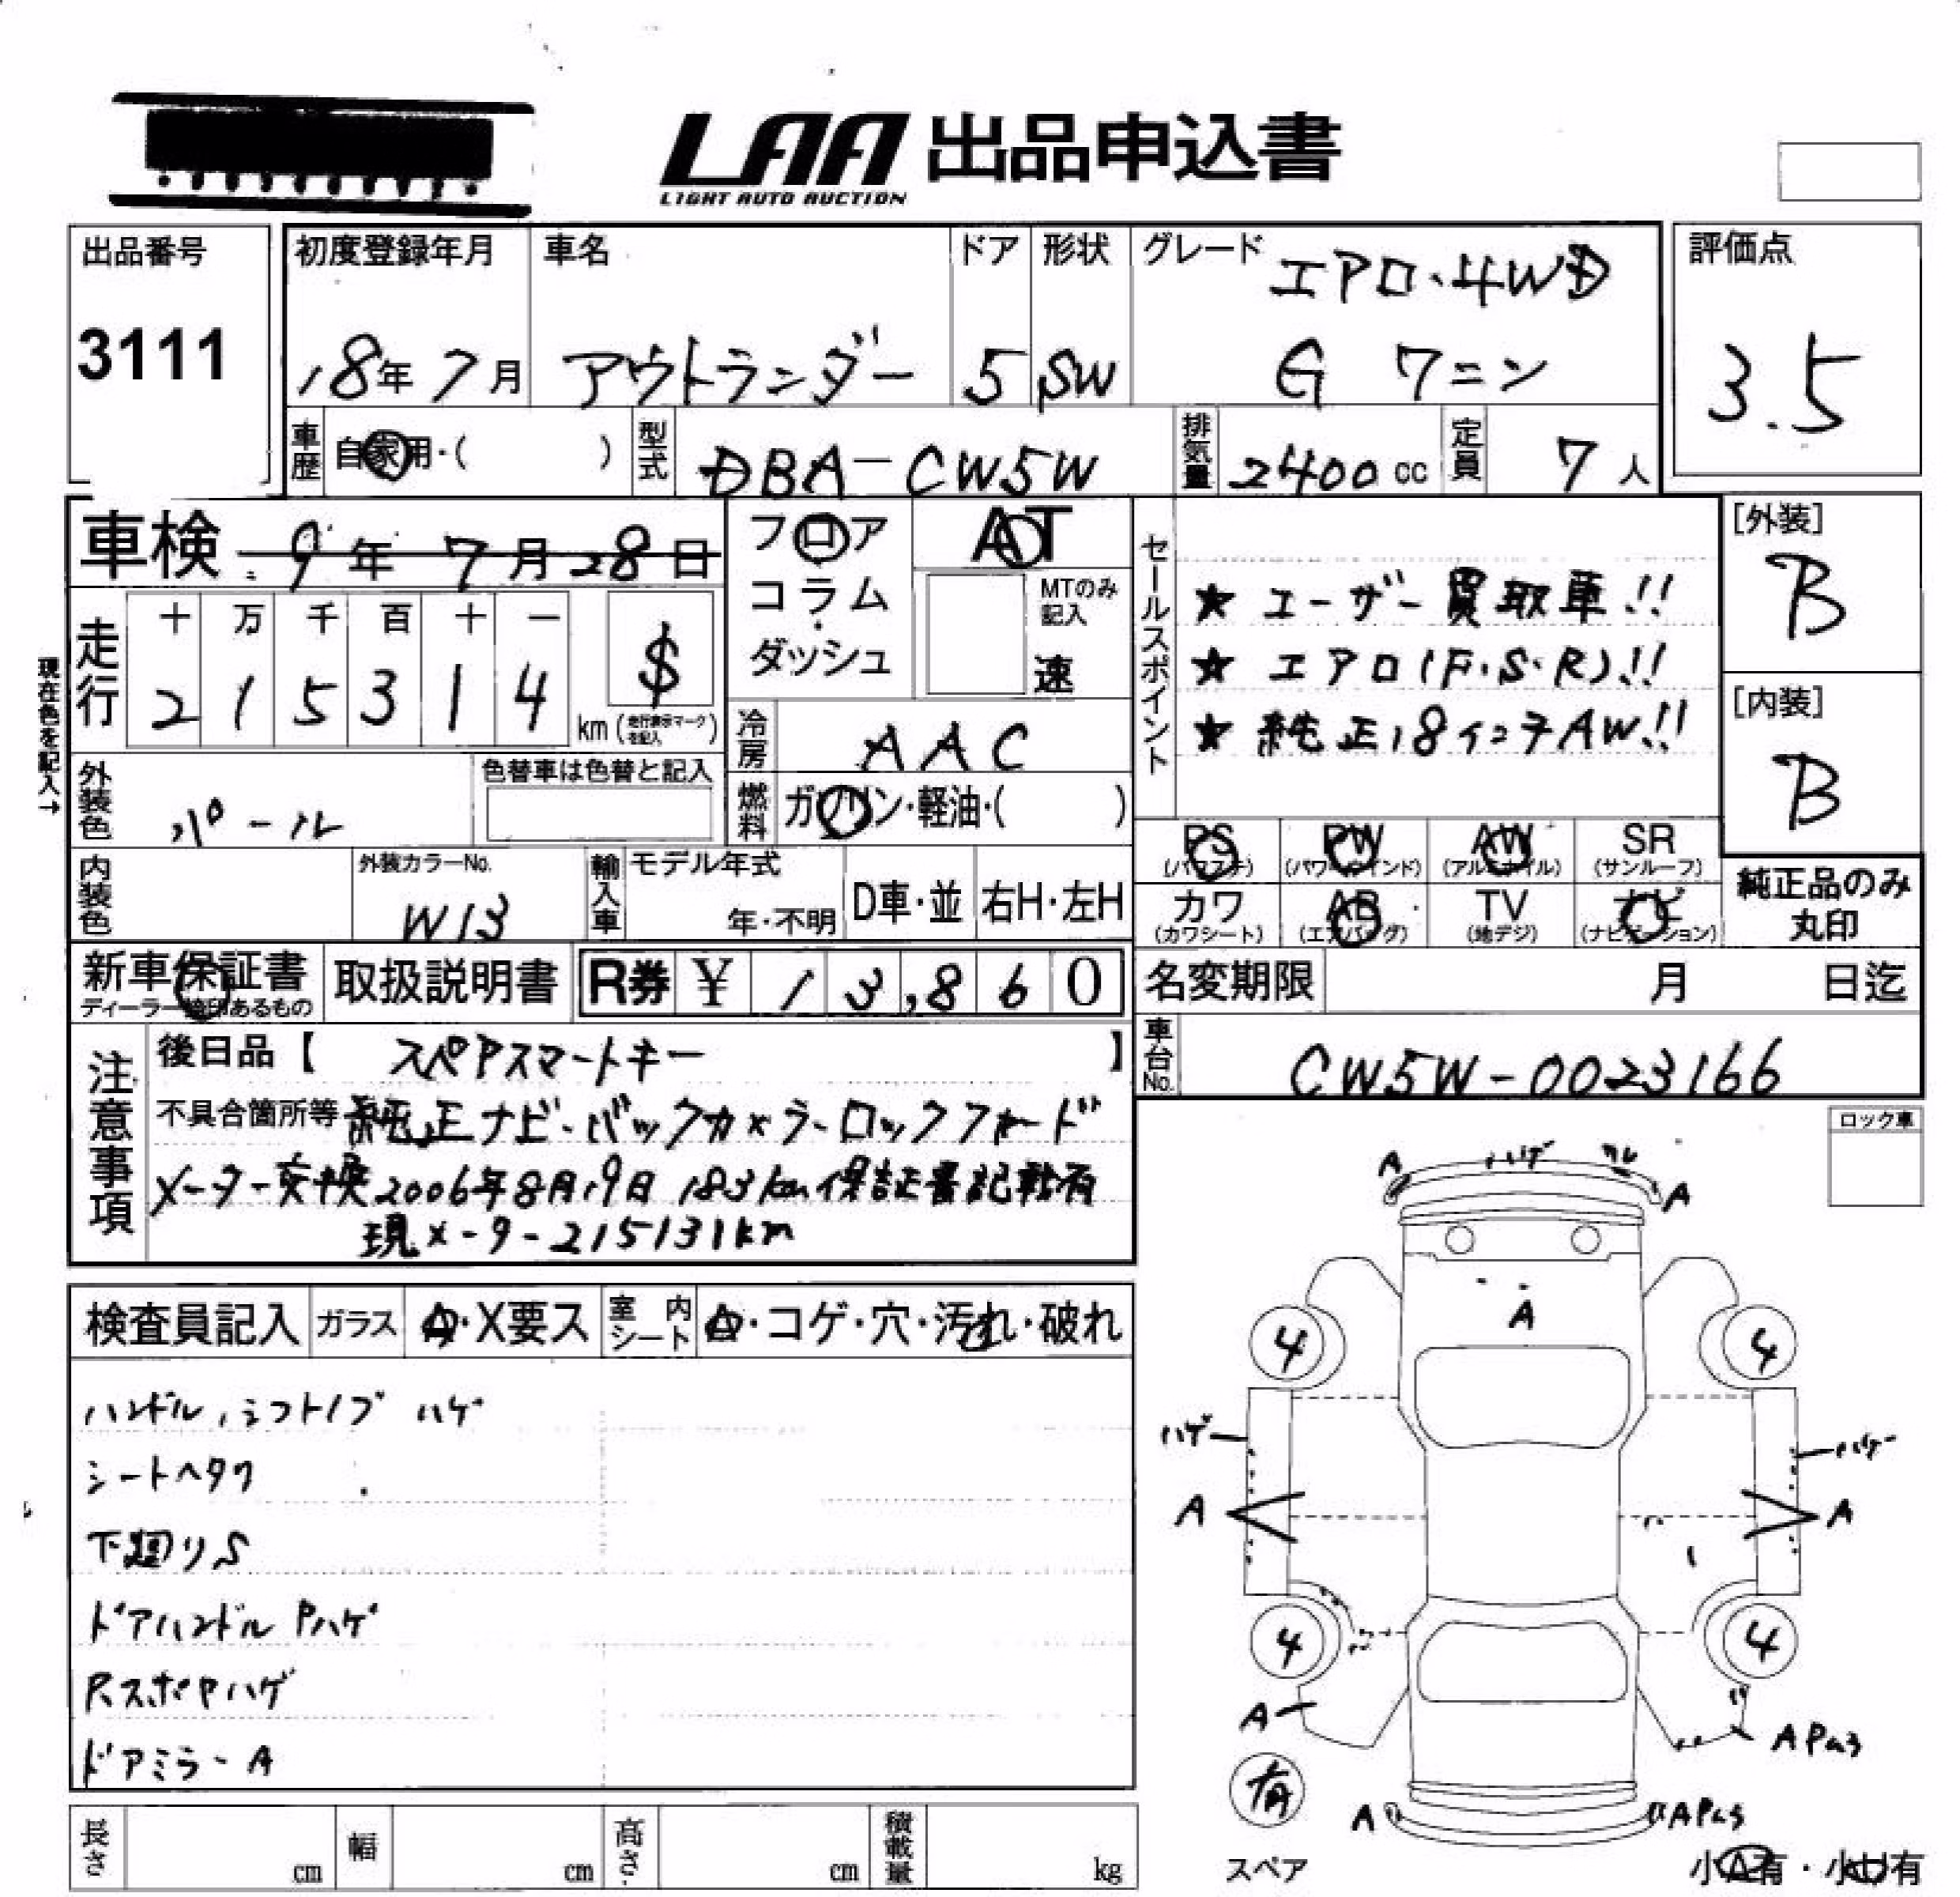 LAA 出品申込書
LIGHT AUTO AUCTION
出品番号
3111
初度登録年月
18年 7月
車名
アウトランダー
ドア
5
形状
SW
グレード
エアロ・4WD
G 7ニン
評価点
3.5
車歴
自家用・( )
型式
DBA-CW5W
排気量
2400 cc
定員
7 人
車検 9年 7月 28日
フロア
コラム
ダッシュ
AT
MTのみ
記入
速
現在色を記入→
走行
十 万 千 百 十 一
2 1 5 3 1 4
$
km (走行表示マークを記入)
冷房
AAC
燃料
ガソリン・軽油・( )
外装色
パール
色替車は色替と記入
内装色
外装カラーNo.
W13
輸入車
モデル年式
年・不明
D車・並
右H・左H
セールスポイント
★ ユーザー買取車!!
★ エアロ(F・S・R)!!
★ 純正18インチAW!!
[外装]
B
[内装]
B
PS
(パワステ)
PW
(パワーウインド)
AW
(アルミホイル)
SR
(サンルーフ)
カワ
(カワシート)
AB
(エアバッグ)
TV
(地デジ)
ナビ
(ナビゲーション)
純正品のみ
丸印
新車保証書
ディーラー捺印あるもの
取扱説明書
R券 ¥ 13,860
名変期限 月 日迄
車台No.
CW5W-0023166
注意事項
後日品【 スペアスマートキー 】
不具合箇所等 純正ナビ・バックカメラ・ロックフォード
メーター交換2006年8月19日 183km保証書記載有
現メーター215131km
ロック車
検査員記入
ガラス
A・X要ス
室内シート
A・コゲ・穴・汚れ・破れ
ハンドル,シフトノブ ハゲ
シートヘタリ
下廻りS
ドアハンドル Pハゲ
Rスポイラハゲ
ドアミラーA
A ハゲ ワレ A
A
4 4
ハゲ ハゲ
A A
4 4
A APはがれ
有
スペア
A
小A有・小U有
長さ cm
幅 cm
高さ cm
積載量 kg